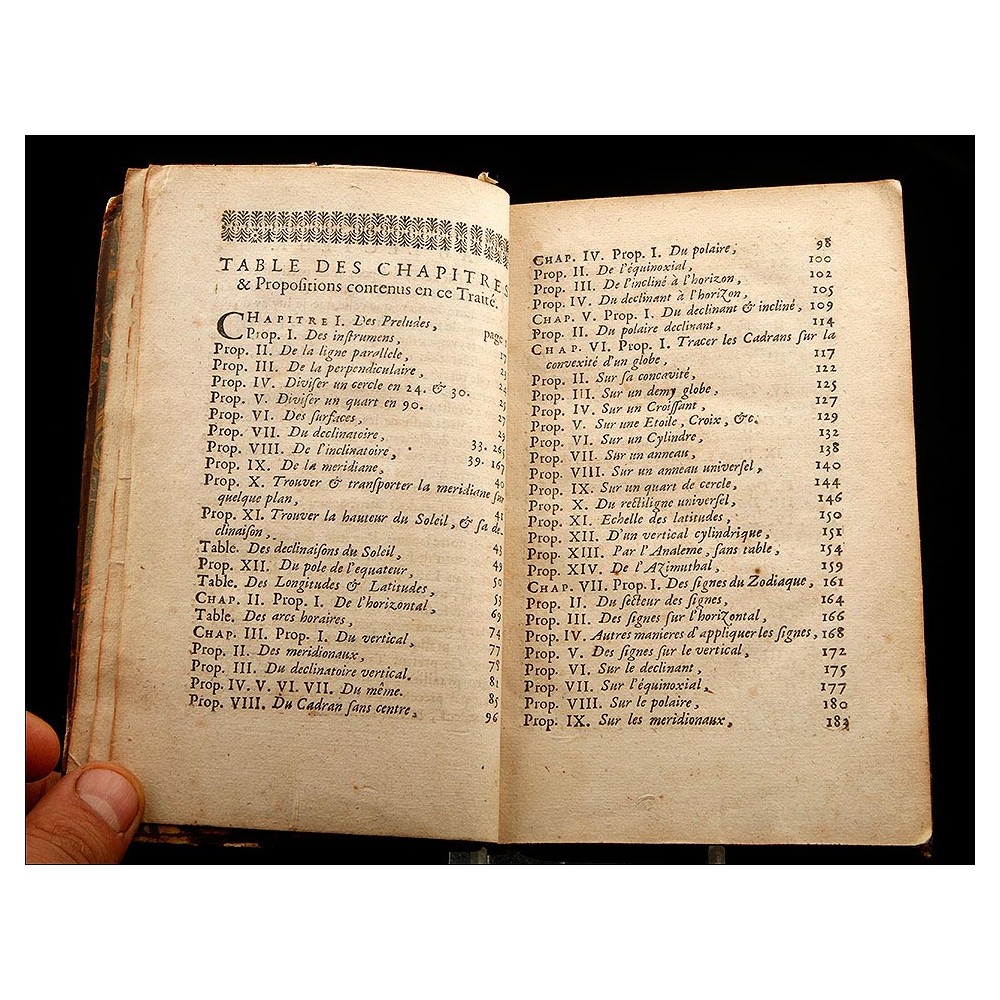 TABLE DES CHAPITRES
& Propoſitions contenus en ce Traité.
CHAPITRE I. Des Preludes, page 1
Prop. I. Des inſtrumens, 17
Prop. II. De la ligne parallele, 23
Prop. III. De la perpendiculaire, 24
Prop. IV. Diviſer un cercle en 24. & 30. 25
Prop. V. Diviſer un quart en 90. 27
Prop. VI. Des ſurfaces, 29
Prop. VII. Du declinatoire, 33. 265
Prop. VIII. De l'inclinatoire, 39. 167
Prop. IX. De la meridiane, 40
Prop. X. Trouver & tranſporter la meridiane ſur
quelque plan, 41
Prop. XI. Trouver la hauteur du Soleil, & ſa de-
clinaiſon, 43
Table. Des declinaiſons du Soleil, 49
Prop. XII. Du pole de l'equateur, 50
Table. Des Longitudes & Latitudes, 53
CHAP. II. Prop. I. De l'horizontal, 69
Table. Des arcs horaires, 74
CHAP. III. Prop. I. Du vertical, 77
Prop. II. Des meridionaux, 78
Prop. III. Du declinatoire vertical. 81
Prop. IV. V. VI. VII. Du même. 85
Prop. VIII. Du Cadran ſans centre, 96
CHAP. IV. Prop. I. Du polaire, 98
Prop. II. De l'équinoxial, 100
Prop. III. De l'incliné à l'horizon, 102
Prop. IV. Du declinant à l'horizon, 105
CHAP. V. Prop. I. Du declinant & incliné, 109
Prop. II. Du polaire declinant, 114
CHAP. VI. Prop. I. Tracer les Cadrans ſur la
convexité d'un globe, 117
Prop. II. Sur ſa concavité, 122
Prop. III. Sur un demy globe, 125
Prop. IV. Sur un Croiſſant, 127
Prop. V. Sur une Etoile, Croix, &c. 129
Prop. VI. Sur un Cylindre, 132
Prop. VII. Sur un anneau, 138
Prop. VIII. Sur un anneau univerſel, 140
Prop. IX. Sur un quart de cercle, 144
Prop. X. Du rectiligne univerſel, 146
Prop. XI. Echelle des latitudes, 150
Prop. XII. D'un vertical cylindrique, 151
Prop. XIII. Par l'Analeme, ſans table, 154
Prop. XIV. De l'Azimuthal, 159
CHAP. VII. Prop. I. Des ſignes du Zodiaque, 161
Prop. II. Du ſecteur des ſignes, 164
Prop. III. Des ſignes ſur l'horizontal, 166
Prop. IV. Autres manieres d'appliquer les ſignes, 168
Prop. V. Des ſignes ſur le vertical, 172
Prop. VI. Sur le declinant, 175
Prop. VII. Sur l'équinoxial, 177
Prop. VIII. Sur le polaire, 180
Prop. IX. Sur les meridionaux, 183